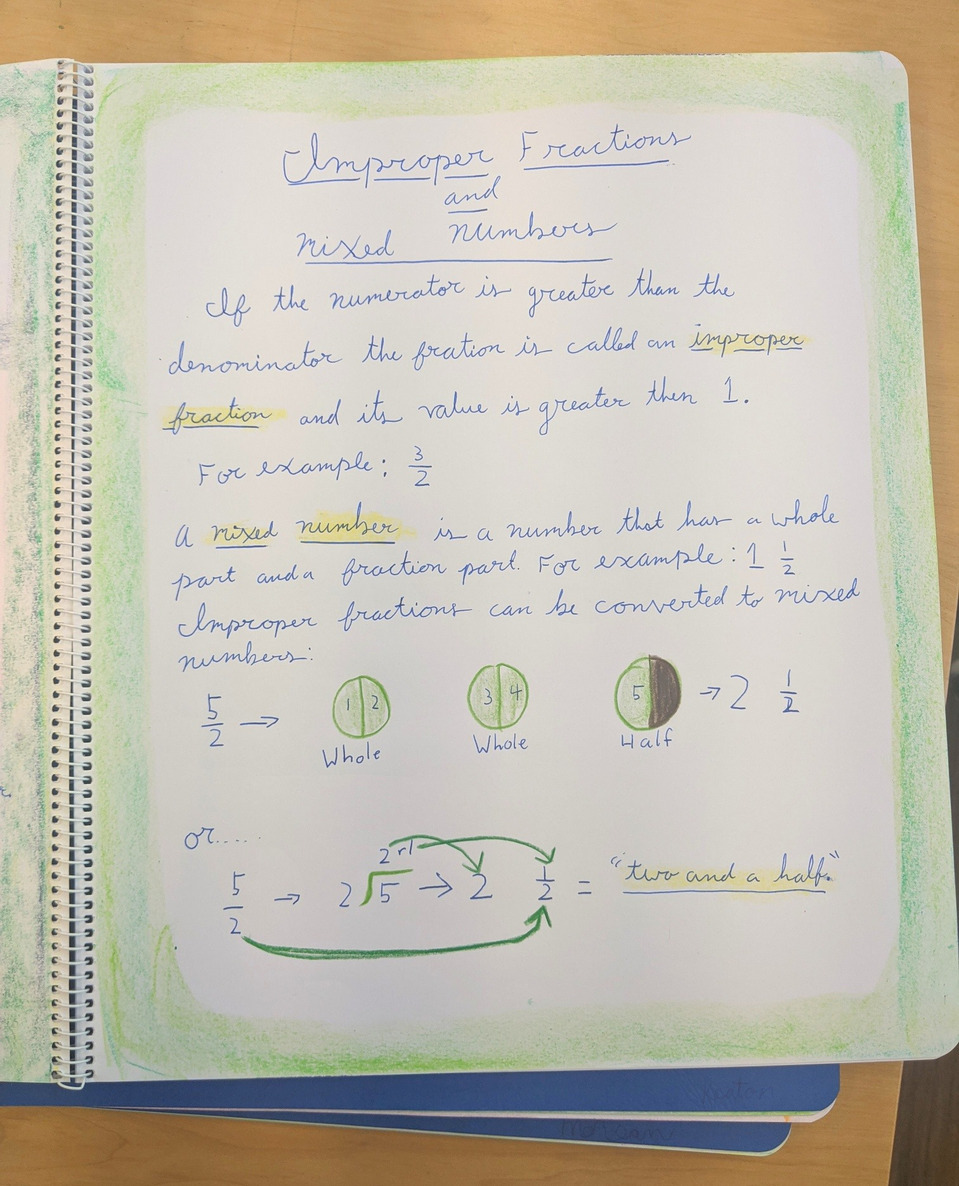 Improper Fractions
and
mixed numbers
If the numerator is greater than the
denominator the fration is called an improper
fraction and its value is greater then 1.
For example: 3/2
A mixed number is a number that has a whole
part and a fraction part. For example: 1 1/2
Improper fractions can be converted to mixed
numbers:
5/2 → 1 2 3 4 5 → 2 1/2
Whole Whole Half
or.....
2 r1
5/2 → 2 5 → 2 1/2 = "two and a half."